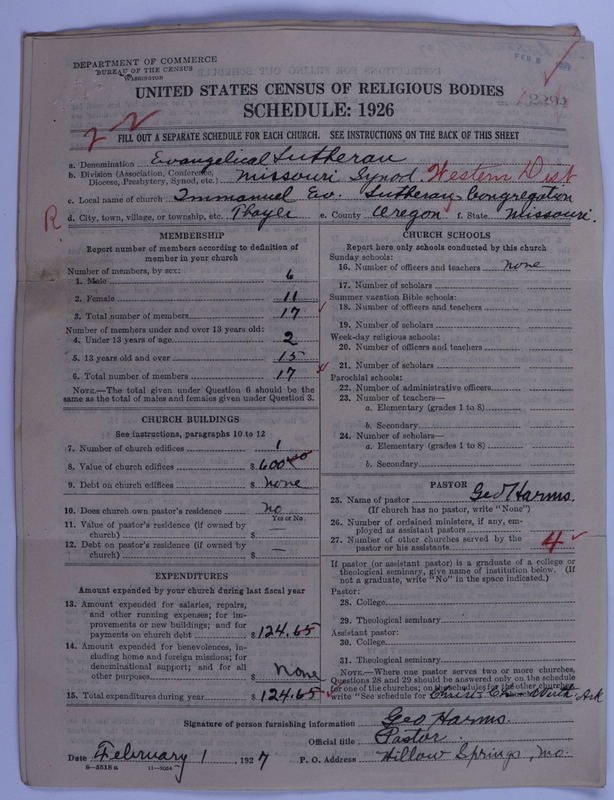 DEPARTMENT OF COMMERCE
BUREAU OF THE CENSUS
WASHINGTON
FEB 8
UNITED STATES CENSUS OF RELIGIOUS BODIES
SCHEDULE: 1926
FILL OUT A SEPARATE SCHEDULE FOR EACH CHURCH. SEE INSTRUCTIONS ON THE BACK OF THIS SHEET
a. Denomination Evangelical Lutheran
b. Division (Association, Conference, Diocese, Presbytery, Synod, etc.) Missouri Synod Western Dist
c. Local name of church Immanuel Ev. Lutheran Congregation
R d. City, town, village, or township, etc. Thayer e. County Oregon f. State Missouri.
MEMBERSHIP
Report number of members according to definition of
member in your church
Number of members, by sex:
1. Male 6
2. Female 11
3. Total number of members 17
Number of members under and over 13 years old:
4. Under 13 years of age 2
5. 13 years old and over 15
6. Total number of members 17
NOTE.—The total given under Question 6 should be
same as the total of males and females given under Question 3.
CHURCH BUILDINGS
See instructions, paragraphs 10 to 12
7. Number of church edifices 1
8. Value of church edifices $ 600
9. Debt on church edifices $ none
10. Does church own pastor's residence? no
Yes or No
11. Value of pastor's residence (if owned by
church) $ —
12. Debt on pastor's residence (if owned by
church) $ —
EXPENDITURES
Amount expended by your church during last fiscal year
13. Amount expended for salaries, repairs,
and other running expenses; for im-
provements or new buildings; and for
payments on church debt $ 124.65
14. Amount expended for benevolences, in-
cluding home and foreign missions; for
denominational support; and for all
other purposes $ None
15. Total expenditures during year $ 124.65
CHURCH SCHOOLS
Report here only schools conducted by this church
Sunday schools:
16. Number of officers and teachers none
17. Number of scholars
Summer vacation Bible schools:
18. Number of officers and teachers
19. Number of scholars
Week-day religious schools:
20. Number of officers and teachers
21. Number of scholars
Parochial schools:
22. Number of administrative officers
23. Number of teachers—
a. Elementary (grades 1 to 8)
b. Secondary
24. Number of scholars—
a. Elementary (grades 1 to 8)
b. Secondary
PASTOR
25. Name of pastor Geo Harms.
(If church has no pastor, write "None")
26. Number of ordained ministers, if any, em-
ployed as assistant pastors
27. Number of other churches served by the
pastor or his assistants 4
If pastor (or assistant pastor) is a graduate of a college or
theological seminary, give name of institution below. (If
not a graduate, write "No" in the space indicated.)
Pastor:
28. College
29. Theological seminary
Assistant pastor:
30. College
31. Theological seminary
NOTE.—Where one pastor serves two or more churches,
Questions 28 and 29 should be answered only on the schedule
for one of the churches; on the schedules for the other churches
write "See schedule for Christ Ark
Signature of person furnishing information Geo Harms
Official title Pastor
Date February 1, 1927 P. O. Address Willow Springs, Mo.
8—5518 a 11—9054